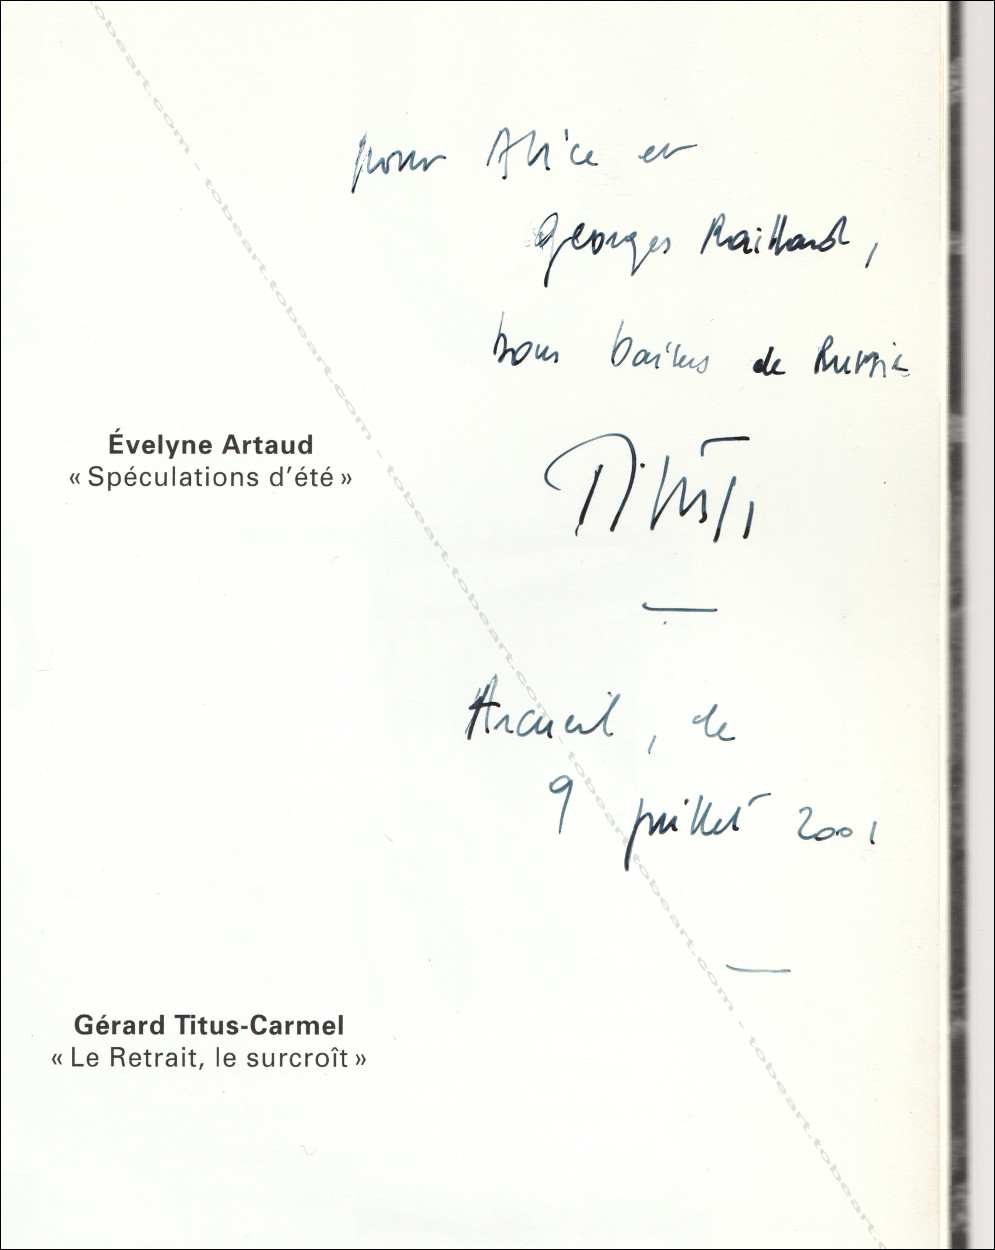 pour Alice et
Georges Raillard,
bons baisers de Russie
Titus
Évelyne Artaud
« Spéculations d'été »
Arcueil, le
9 juillet 2001
Gérard Titus-Carmel
« Le Retrait, le surcroît »
tobeart.com - tobeart.com - tobeart.com - tobeart.com